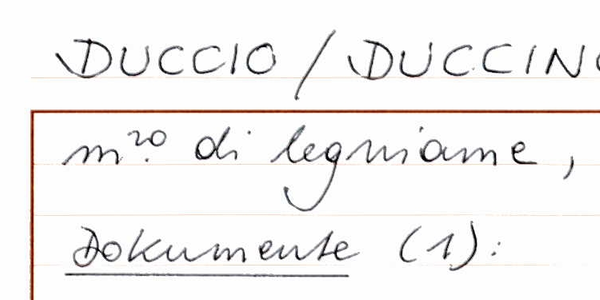 DUCCIO / DUCCINO
m.ro di legniame,
Dokumente (1):